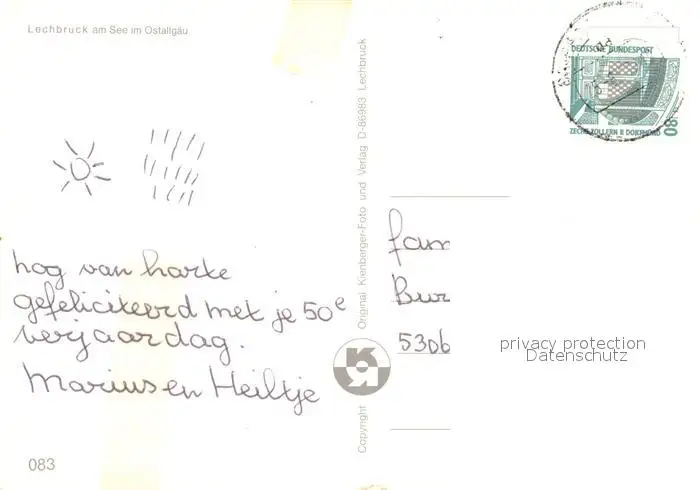 Lechbruck am See im Ostallgäu
hog van harte
gefeliciteerd met je 50e
verjaardag.
Marius en Heiltje
083
Original Kienberger-Foto und Verlag D-86983 Lechbruck
Copyright
DEUTSCHE BUNDESPOST
80
ZECHE ZOLLERN II DORTMUND
fam
Bur
5306
privacy protection
Datenschutz